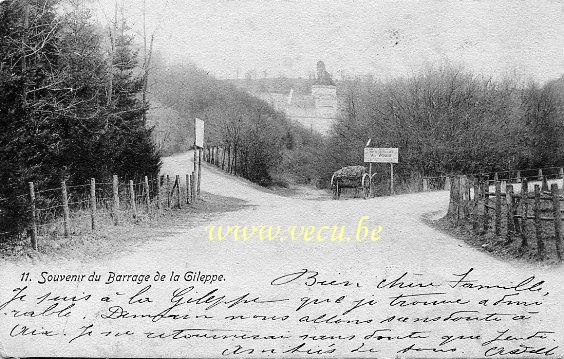 www.vecu.be
11. Souvenir du Barrage de la Gileppe.
Bien chère Famille,
Je suis à la Gileppe que je trouve admi
rable. Demain nous allons sans doute à
Je ne retournerai sans doute que
de tous